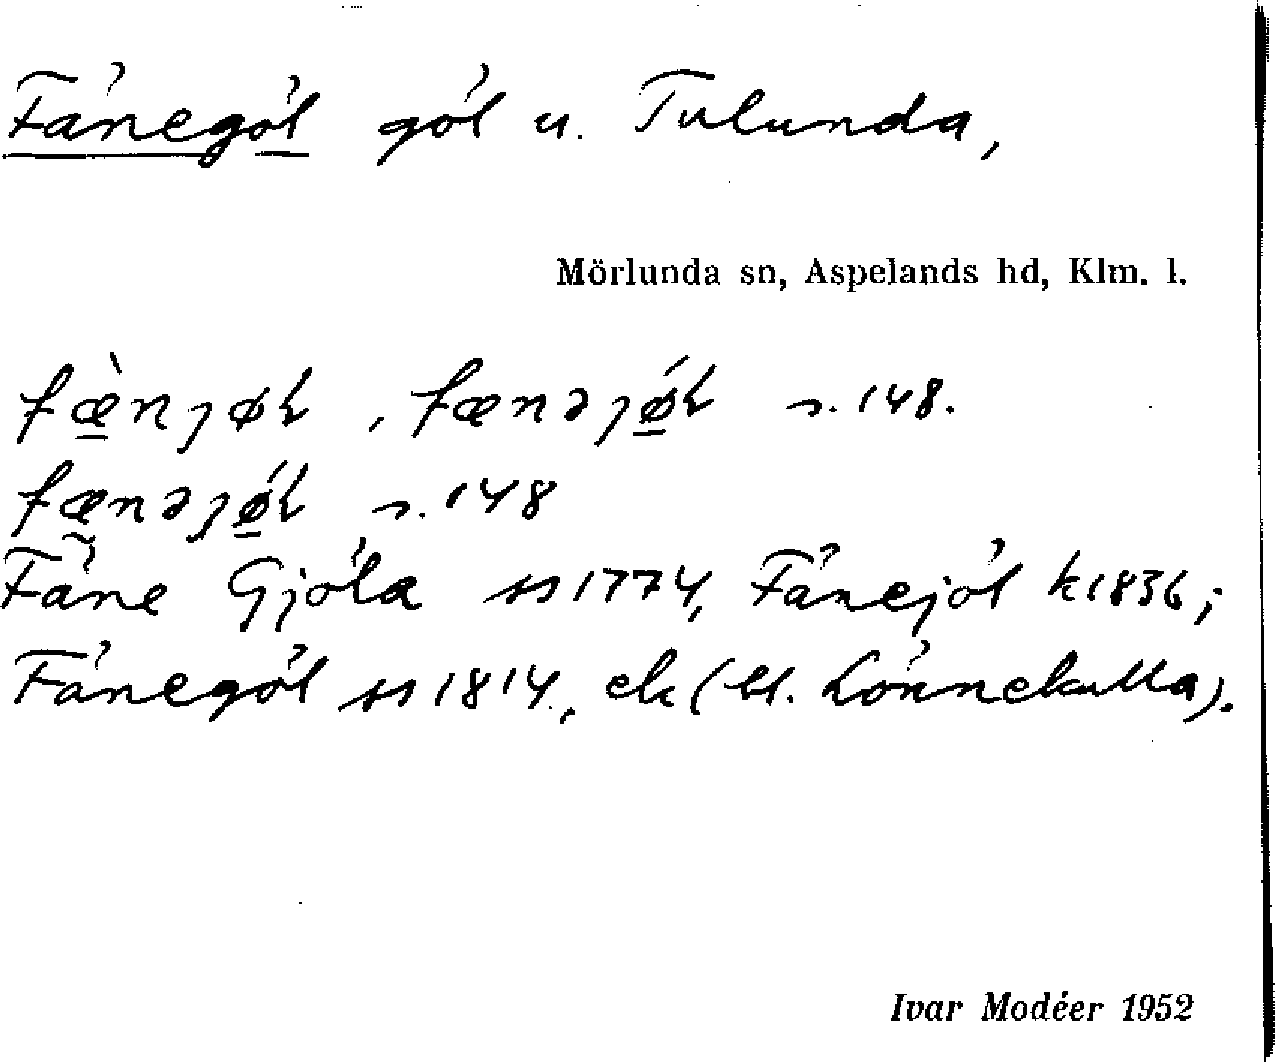 Fänegöl göl u. Tulunda,
Mörlunda sn, Aspelands hd, Klm. l.
fæ̀nȷøɫ, fænəȷǿɫ s. 148.
fænəȷǿɫ s. 148
Fäne Gjöla ss 1774, Fänejöl k 1836;
Fänegöl ss 1814, ek (bl. Lönnekulla).
Ivar Modéer 1952